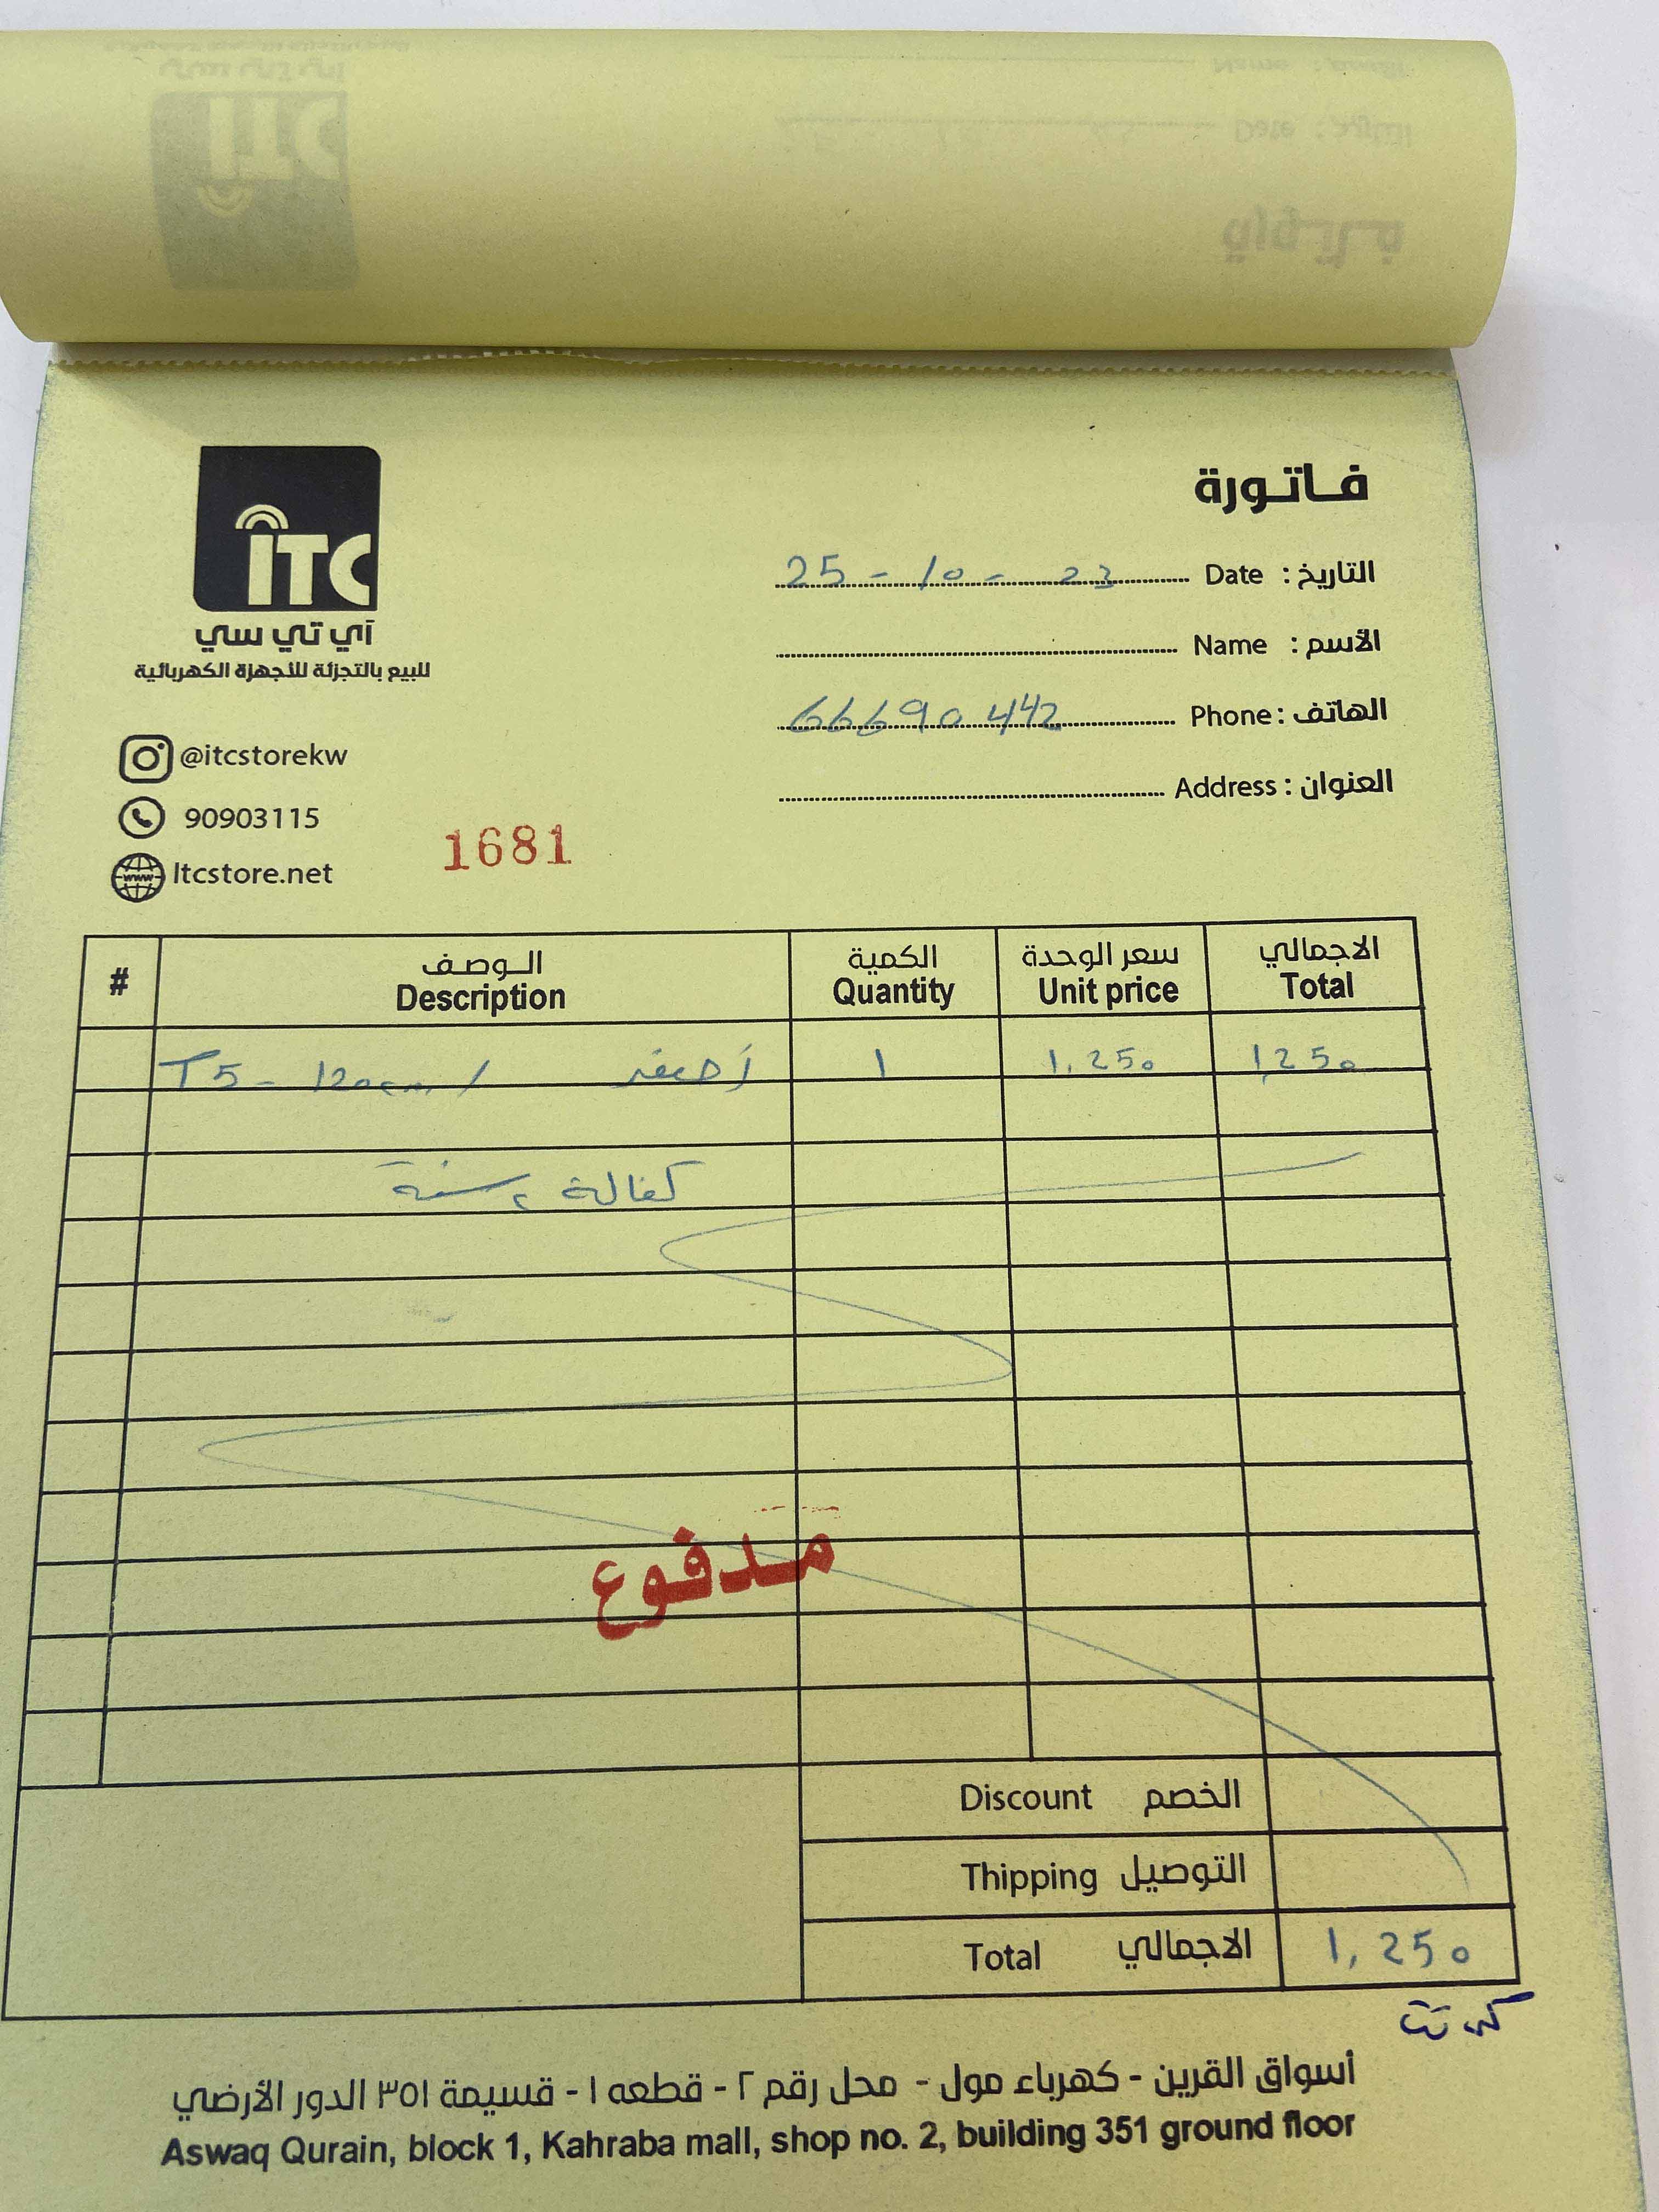 ITC
آي تي سي
للبيع بالتجزئة للأجهزة الكهربائية
@itcstorekw
90903115
Itcstore.net
1681
فـاتـورة
التاريخ : Date 25 - 10 - 23
الأسم : Name
الهاتف : Phone 66690442
العنوان : Address
# الـوصـف الكمية سعر الوحدة الاجمالي
Description Quantity Unit price Total
T5 - 120cm / أصفر 1 1,250 1,250
كفالة سنة
مـدفوع
Discount الخصم
Thipping التوصيل
Total الاجمالي 1,250
أسواق القرين - كهرباء مول - محل رقم ٢ - قطعه ١ - قسيمة ٣٥١ الدور الأرضي
Aswaq Qurain, block 1, Kahraba mall, shop no. 2, building 351 ground floor